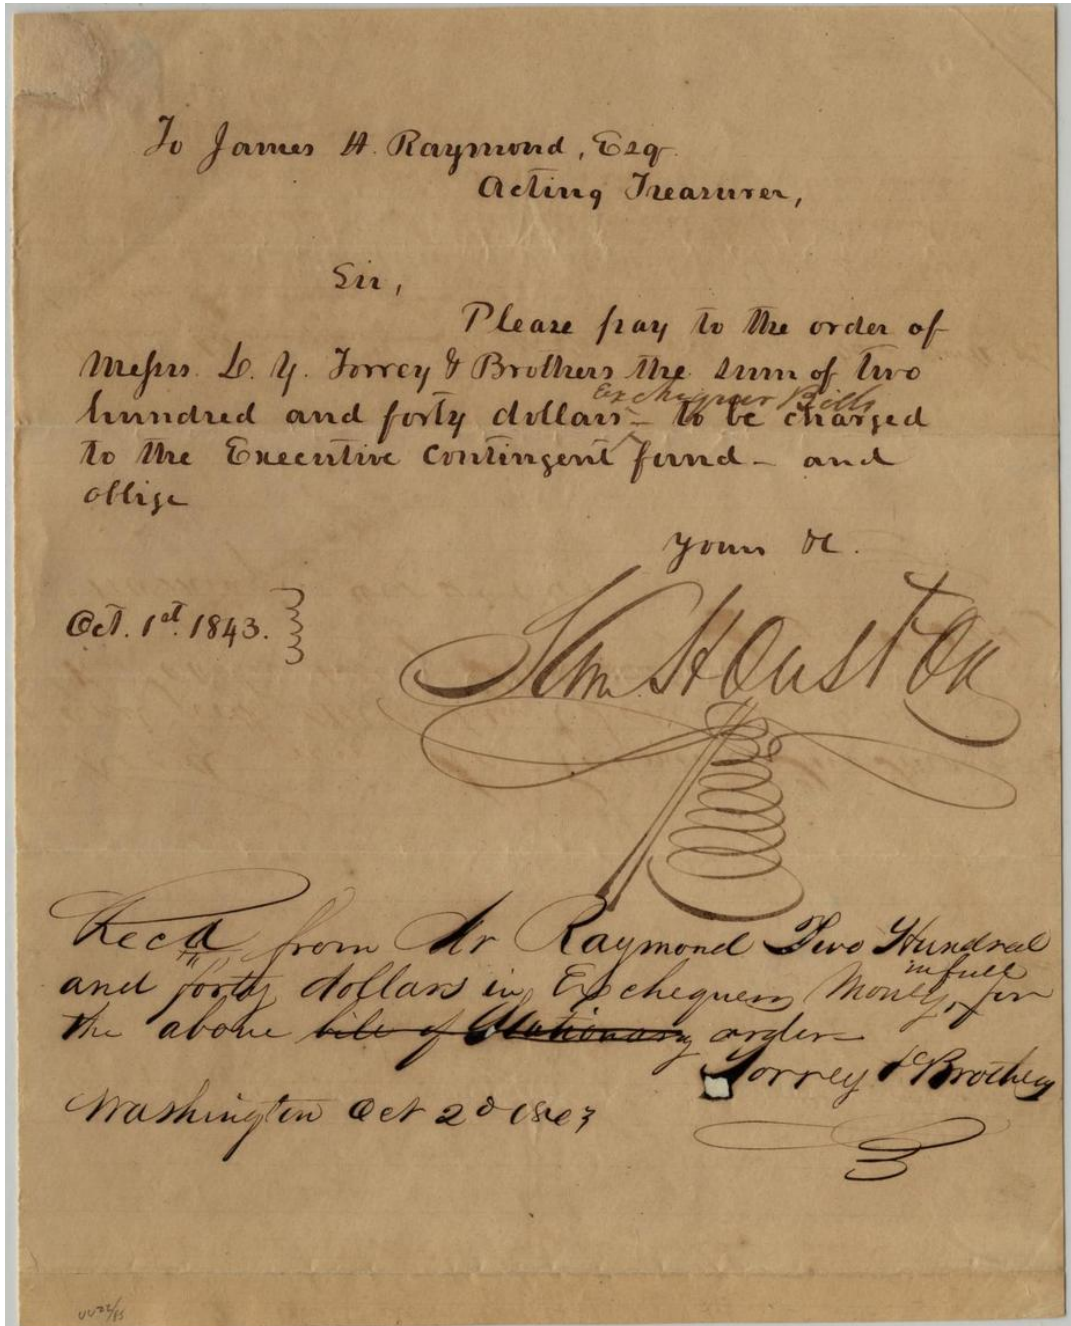 To James H. Raymond, Esq.
Acting Treasurer,
Sir,
Please pay to the order of
Messrs. D. K. Torrey & Brothers the sum of two
Exchequer Bills
hundred and forty dollars – to be charged
to the Executive Contingent fund – and
oblige
Yours &c.
Oct. 1st. 1843.
Sam Houston
Recd from Mr Raymond Two Hundred
in full
and forty dollars in Exchequer Money, for
the above bill of Stationary order
Torrey & Brothers
Washington Oct 2d 1843